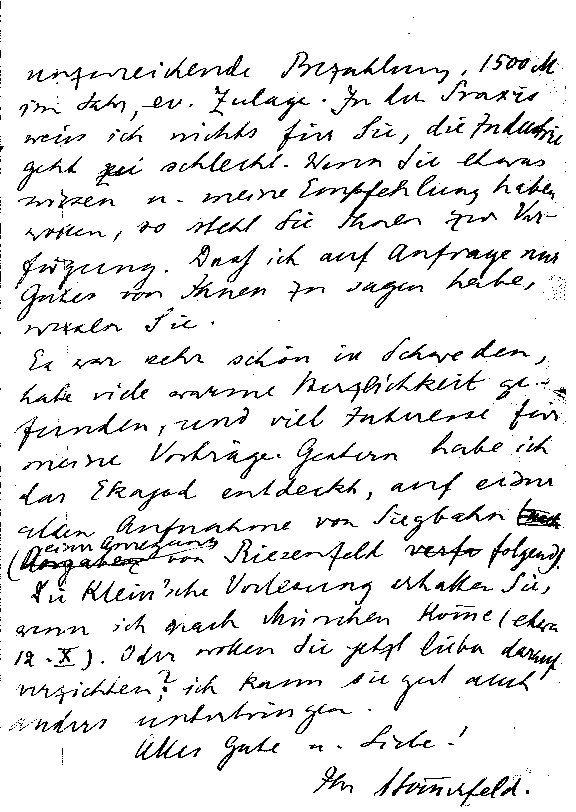 unzureichende Bezahlung, 1500 M
im Jahr, ev. Zulage. In der Praxis
weiss ich nichts für Sie, die Industrie
geht zu schlecht. Wenn Sie etwas
wissen u. meine Empfehlung haben
wollen, so steht Sie Ihnen zur Ver-
fügung. Dass ich auf Anfrage nur
Gutes von Ihnen zu sagen habe,
wissen Sie.
Es war sehr schön in Schweden,
habe viele warme Herzlichkeit ge-
funden, und viel Interesse für
meine Vorträge. Gestern habe ich
das Ekajod entdeckt, auf einer
alten Aufnahme von Siegbahn
(einer Anregung von Riesenfeld folgend).
Die Klein'sche Vorlesung erhalten Sie,
wenn ich nach München komme (etwa
12. X). Oder wollen Sie jetzt lieber darauf
verzichten? ich kann sie gut auch
anders unterbringen.
Alles Gute u. Liebe!
Ihr ASommerfeld.